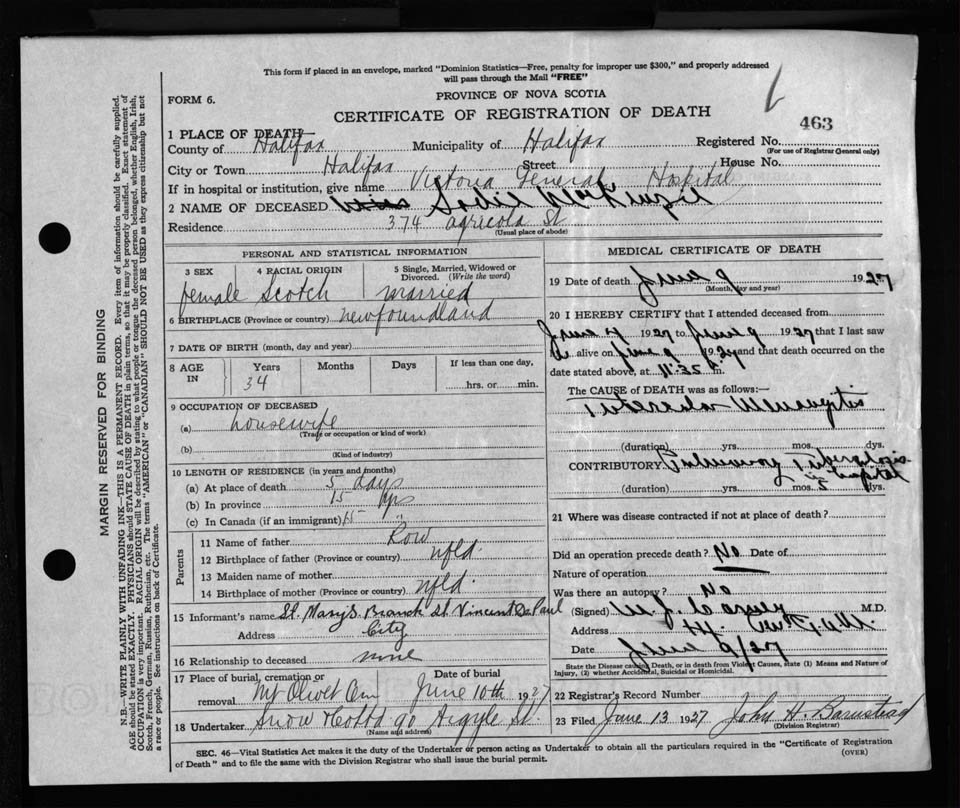 This form if placed in an envelope, marked "Dominion Statistics—Free, penalty for improper use $300," and properly addressed
will pass through the Mail "FREE"
FORM 6.
PROVINCE OF NOVA SCOTIA
CERTIFICATE OF REGISTRATION OF DEATH
463
1 PLACE OF DEATH—
County of Halifax Municipality of Halifax Registered No.
(For use of Registrar General only)
City or Town Halifax Street House No.
If in hospital or institution, give name Victoria General Hospital
2 NAME OF DECEASED Sadie McKenzie
Residence 374 Agricola St
(Usual place of abode)
PERSONAL AND STATISTICAL INFORMATION
3 SEX 4 RACIAL ORIGIN 5 Single, Married, Widowed or Divorced. (Write the word)
female Scotch married
6 BIRTHPLACE (Province or country) Newfoundland
7 DATE OF BIRTH (month, day and year)
8 AGE IN Years Months Days If less than one day,
34 hrs. or min.
9 OCCUPATION OF DECEASED
(a) housewife
(Trade or occupation or kind of work)
(b)
(Kind of industry)
10 LENGTH OF RESIDENCE (in years and months)
(a) At place of death 5 days
(b) In province 15 yrs
(c) In Canada (if an immigrant) 15 "
Parents
11 Name of father Row
12 Birthplace of father (Province or country) Nfld.
13 Maiden name of mother
14 Birthplace of mother (Province or country) Nfld.
15 Informant's name St. Mary's Branch St. Vincent De Paul
Address City
16 Relationship to deceased none
17 Place of burial, cremation or removal Date of burial
Mt Olivet Cem June 10th 1927
18 Undertaker Snow & Co Ltd 90 Argyle St.
(Name and address)
MEDICAL CERTIFICATE OF DEATH
19 Date of death June 9 1927
(Month, day and year)
20 I HEREBY CERTIFY that I attended deceased from
June 4 1927 to June 9 1927 that I last saw
alive on June 9 1927 and that death occurred on
date stated above, at 11.35 m.
The CAUSE of DEATH was as follows:—
Tubercular Meningitis
(duration) yrs. mos. dys.
CONTRIBUTORY Pulmonary Tuberculosis
(duration) yrs. mos. dys.
21 Where was disease contracted if not at place of death?
Did an operation precede death? No Date of
Nature of operation
Was there an autopsy? No
(Signed) M.D.
Address
Date June 9/27
State the Disease causing Death, or in death from Violent Causes, state (1) Means and Nature of
Injury, (2) whether Accidental, Suicidal or Homicidal.
22 Registrar's Record Number
23 Filed June 13 1927 John H. Barnstead
(Division Registrar)
SEC. 46—Vital Statistics Act makes it the duty of the Undertaker or person acting as Undertaker to obtain all the particulars required in the "Certificate of Registration
of Death" and to file the same with the Division Registrar who shall issue the burial permit.
(OVER)
MARGIN RESERVED FOR BINDING
N.B.—WRITE PLAINLY WITH UNFADING INK—THIS IS A PERMANENT RECORD. Every item of information should be carefully supplied.
AGE should be stated EXACTLY. PHYSICIANS should STATE CAUSE OF DEATH in plain terms, so that it may be properly classified. Exact statement of
OCCUPATION is very important. RACIAL ORIGIN will be described by stating to what people or tongue the deceased person belonged, whether English, Irish,
Scotch, French, German, Russian, Ruthenian, etc. The terms "AMERICAN" or "CANADIAN" SHOULD NOT BE USED as they express citizenship but not
a race or people. See instructions on back of Certificate.